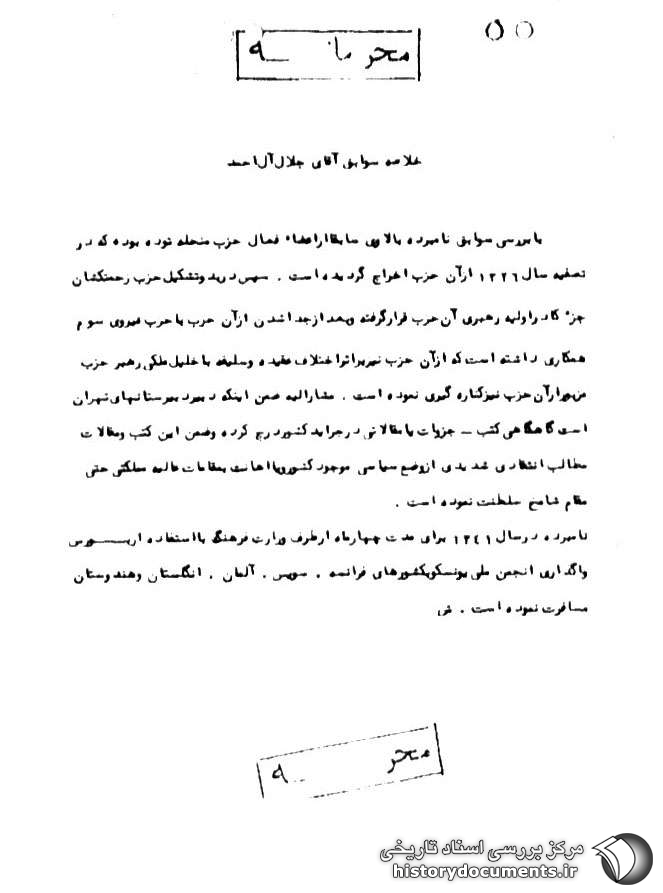 محرمانه
خلاصه سوابق آقای جلال آل احمد
با بررسی سوابق نامبرده بالا وی سابقا از اعضاء فعال حزب منحله توده بوده که در
تصفیه سال ۱۳۲۶ از آن حزب اخراج گردیده است . سپس در بدو تشکیل حزب زحمتکشان
جزء کادر اولیه رهبری آن حزب قرار گرفته و بعد از جدا شدن از آن حزب با حزب نیروی سوم
همکاری داشته است که از آن حزب نیز بر اثر اختلاف عقیده و سلیقه با خلیل ملکی رهبر حزب
مزبور از آن حزب نیز کناره گیری نموده است . مشارالیه ضمن اینکه دبیر دبیرستانهای تهران
است گاهگاهی کتب ـ جزوات یا مقالاتی در جراید کشور درج کرده و ضمن این کتب و مقالات
مطالب انتقادی شدیدی از وضع سیاسی موجود کشور و یا اهانت بمقامات عالیه مملکتی حتی
مقام شامخ سلطنت نموده است .
نامبرده در سال ۱۳۴۱ برای مدت چهارماه از طرف وزارت فرهنگ با استفاده از بورس
واگذاری انجمن ملی یونسکو بکشورهای فرانسه . سویس . آلمان . انگلستان و هندوستان
مسافرت نموده است . ش
محر ه
مرکز بررسی اسناد تاریخی
historydocuments.ir